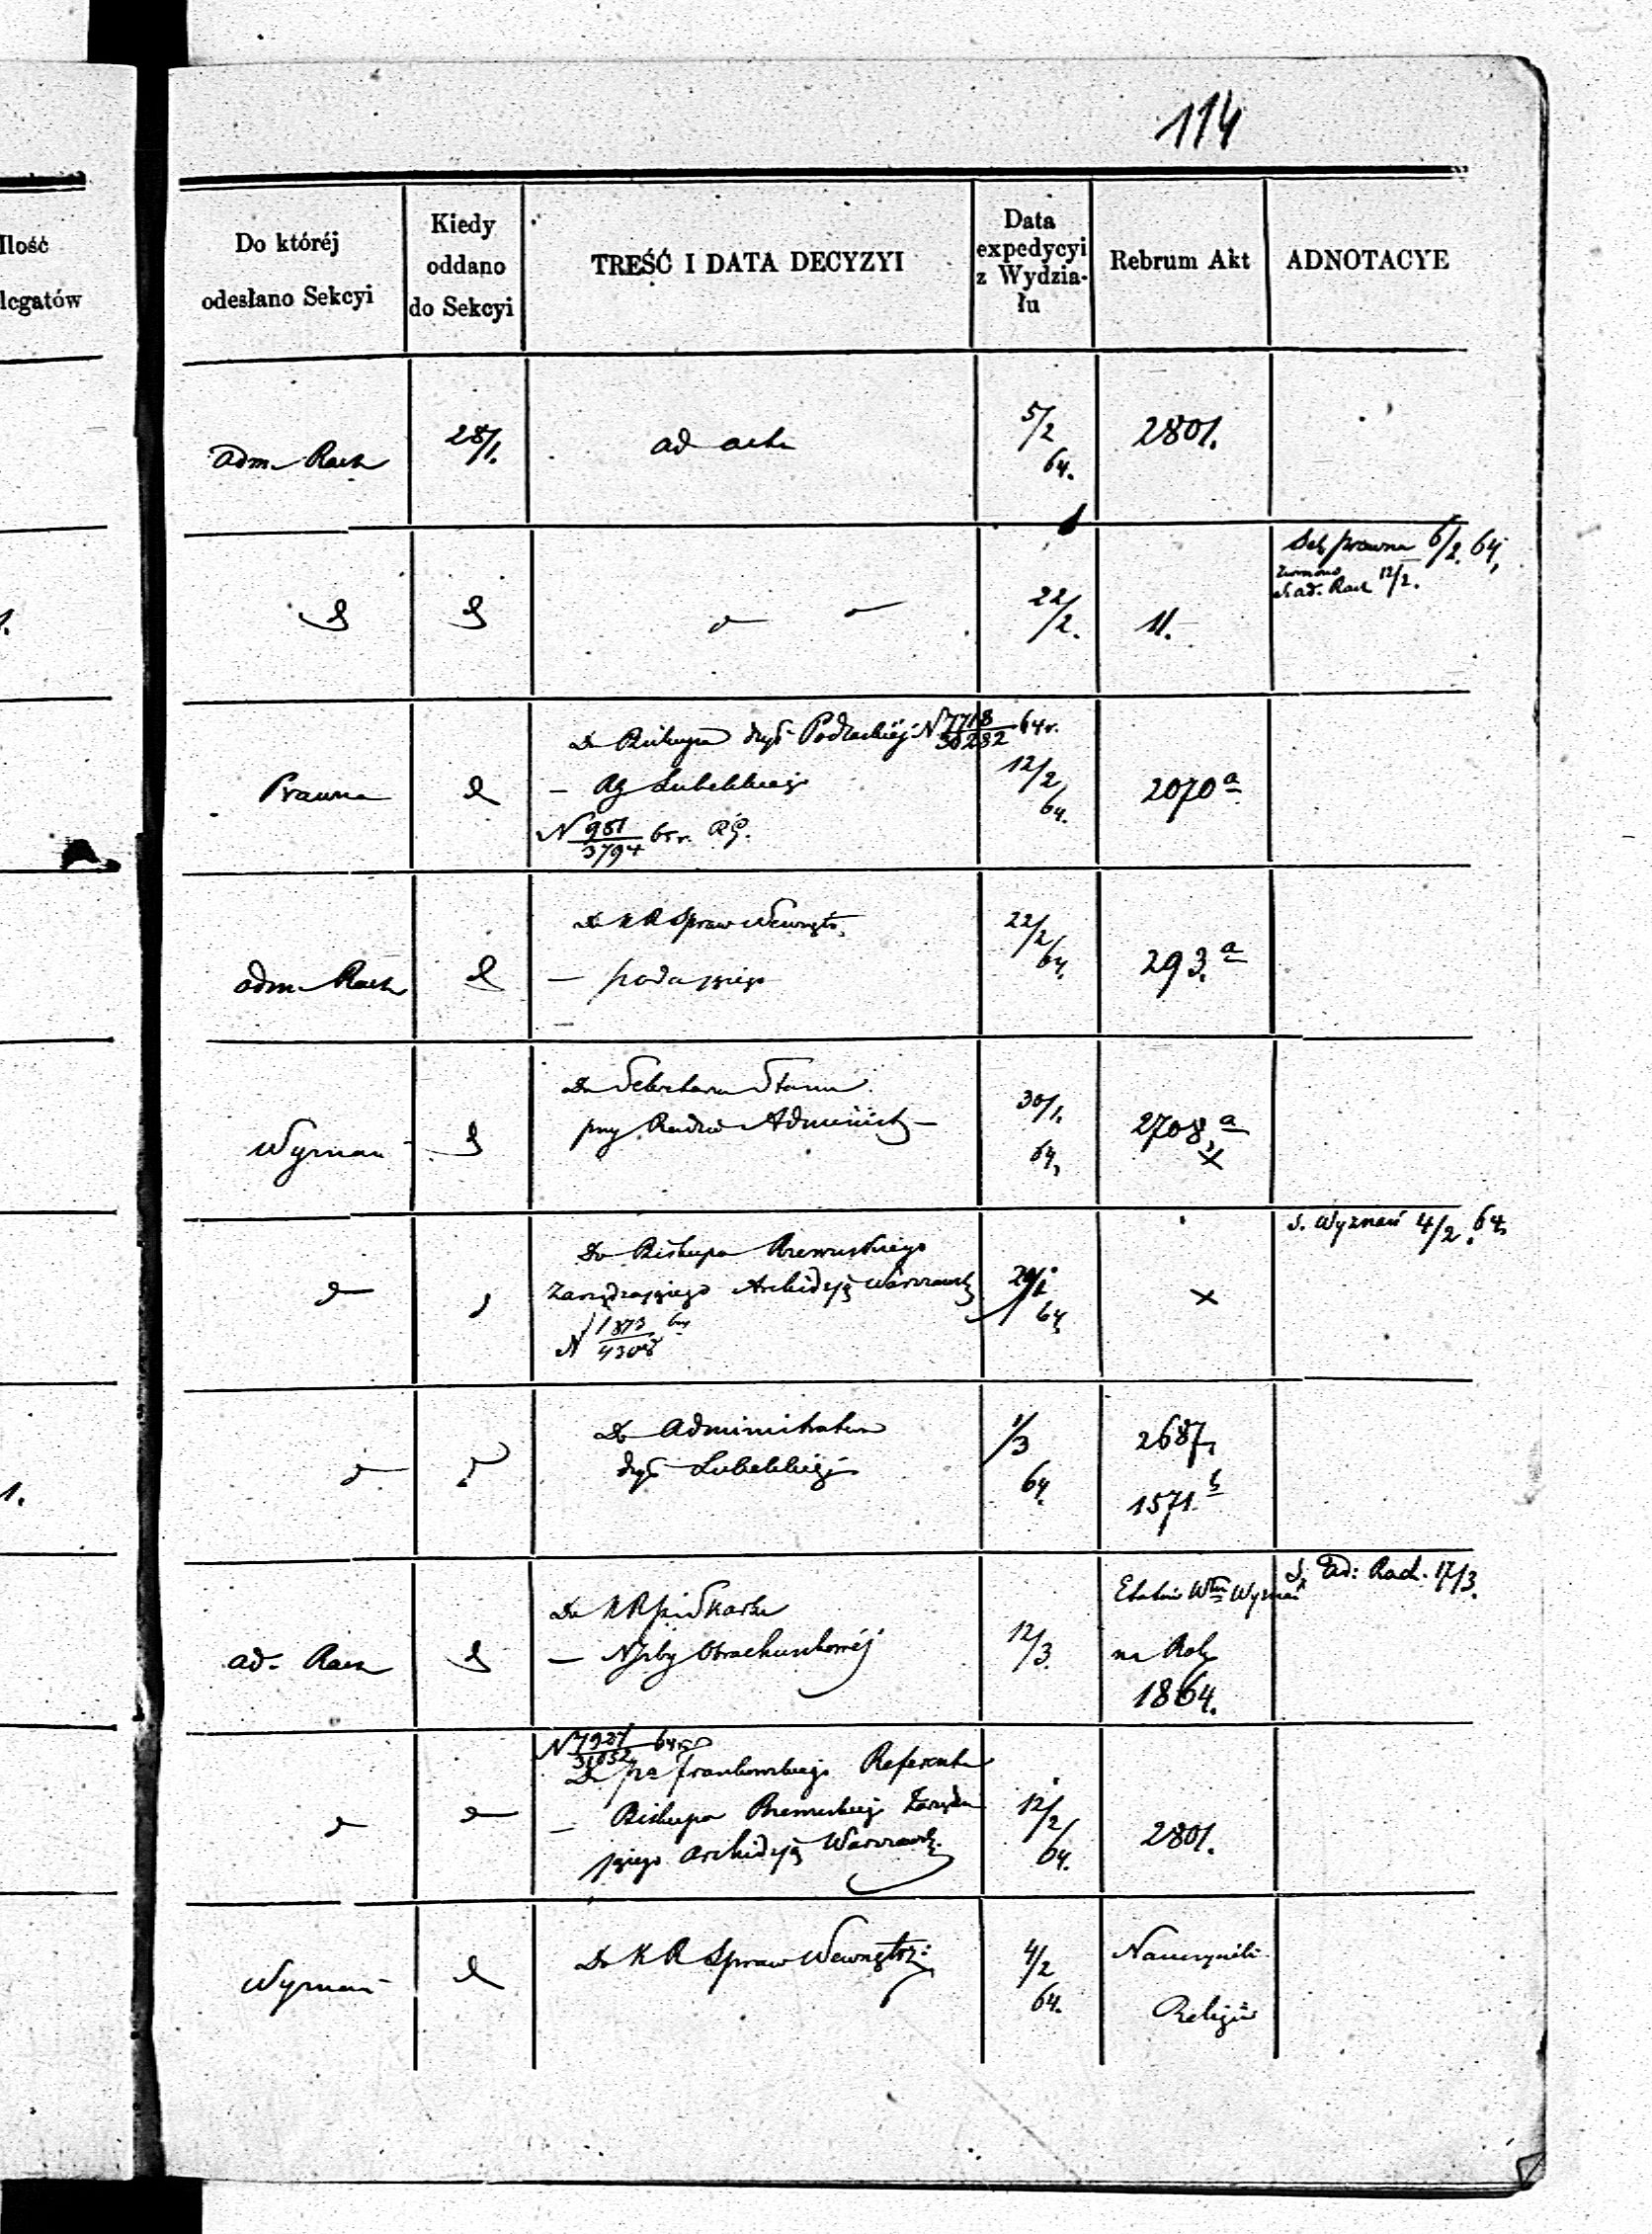 114
Ilość
legatów
Do któréj
odesłano Sekcyi
Kiedy
oddano
do Sekcyi
TREŚĆ I DATA DECYZYI
Data
expedycyi
z Wydzia-
łu
Rebrum Akt
ADNOTACYE
Adm. Rach
28/1.
ad acta
5/2
64.
2801.
22/2.
11.
Sek prawna 6/2. 64,
S. ad. Rach 12/2.
1.
Prawna
Do Biskupa dyec Podlaskiej N 7718/30282 64 r.
— Lubelskiej
N 981/3794 65 r.
12/2
64.
2070 a
adm Rach
Do K R Spraw Wewnętr.
— podającego
22/2
64.
293. a
Wyznań
Do Sekretarza Stanu
przy Radzie Administ —
30/1.
64,
2708, a
x
Do Biskupa Rzewuskiego
Zarządzającego Archidyec Warszawsk
N 1873/4308 64
29/1
64
x
S. Wyznań 4/2. 64,
1.
Do Administratora
dyec Lubelskiej
1/3
64.
2687,
1571. b
ad. Rach
Do K R P i Skarbu
— N Izby Obrachunkowéj
12/3.
Etatów Włu Wyznań
na Rok
1864.
S. Ad: Rach. 17/3.
N 7927/31052 64 r
Do Frankowskiego Referenta
— Biskupa Rzewuskiego Zarządza
jącego Archidyec Warszawsk.
12/2
64.
2801.
Wyznań
Do K R Spraw Wewnętrz:
4/2
64.
Nauczyciele
Religii